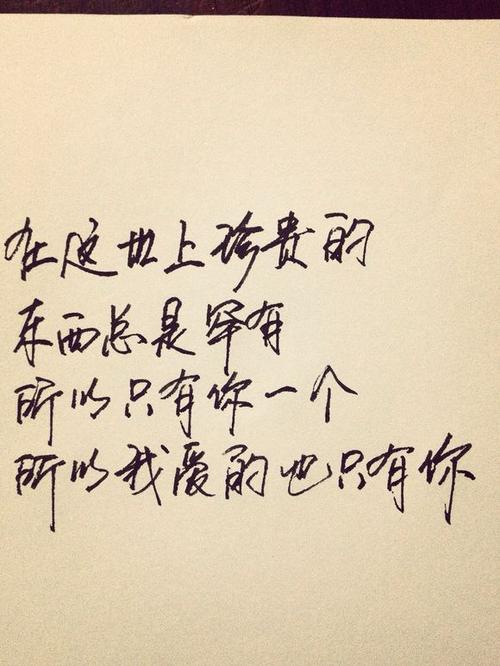 在这世上珍贵的
东西总是罕有
所以只有你一个
所以我爱的也只有你